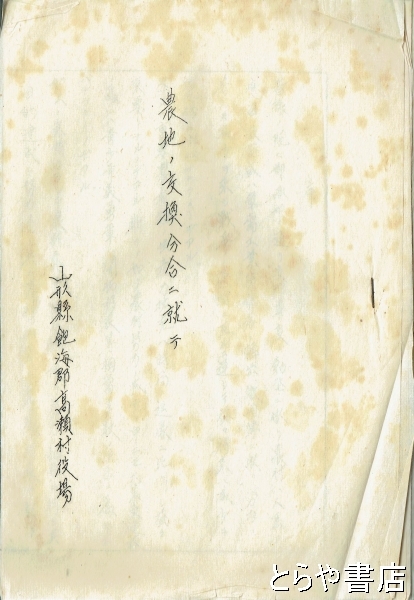 農地ノ交換分合ニ就テ
山形縣飽海郡高瀬村役場
とらや書店